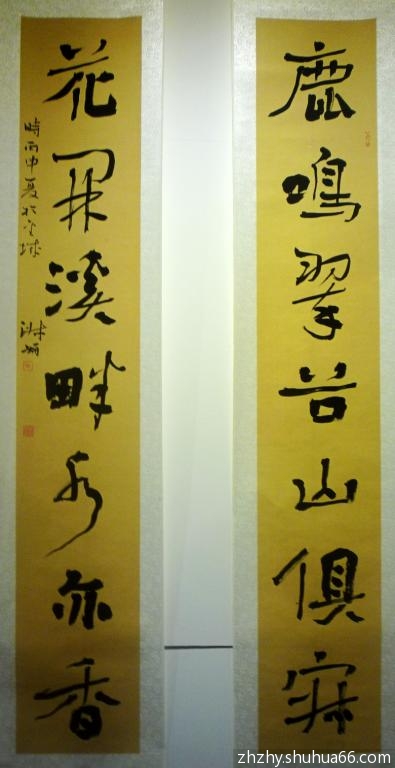 鹿鳴翠谷山俱寂
花開溪畔水亦香
時丙申夏於
zhzhy.shuhua66.com